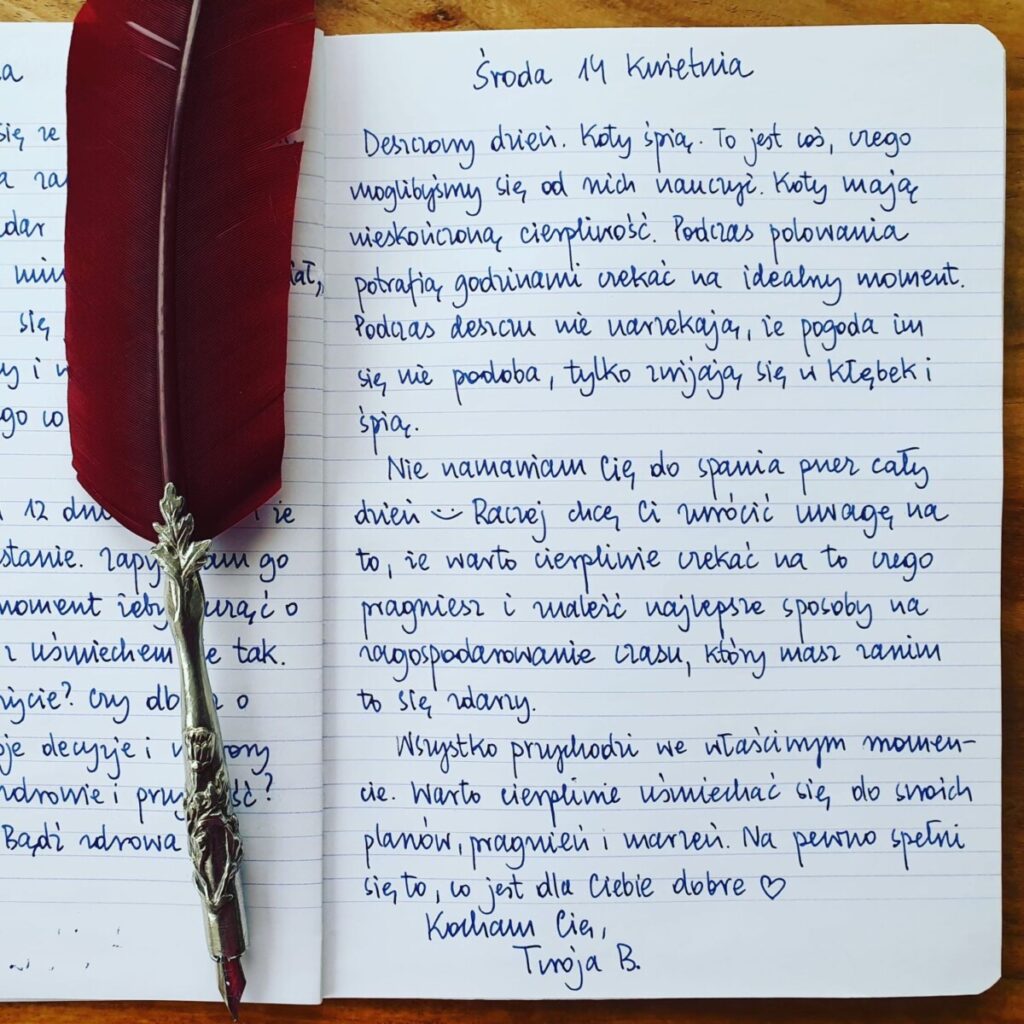 a
się ze
a za
dar
min iał,
się
y i w
go co
12 dn i że
stanie. Zapy am go
moment żeby urąć o
z uśmiechem e tak.
życie? Czy db z o
je decyzje i w ony
zdrowie i przy ść?
Bądź zdrowa
Środa 14 kwietnia
Deszczowy dzień. Koty śpią. To jest coś, czego
moglibyśmy się od nich nauczyć. Koty mają
nieskończoną cierpliwość. Podczas polowania
potrafią godzinami czekać na idealny moment.
Podczas deszczu nie narzekają, że pogoda im
się nie podoba, tylko zwijają się w kłębek i
śpią.
Nie namawiam Cię do spania przez cały
dzień Raczej chcę Ci zwrócić uwagę na
to, że warto cierpliwie czekać na to czego
pragniesz i znaleźć najlepsze sposoby na
zagospodarowanie czasu, który masz zanim
to się zdarzy.
Wszystko przychodzi we właściwym momen-
cie. Warto cierpliwie uśmiechać się do swoich
planów, pragnień i marzeń. Na pewno spełni
się to, co jest dla Ciebie dobre ♡
Kocham Cię,
Twoja B.